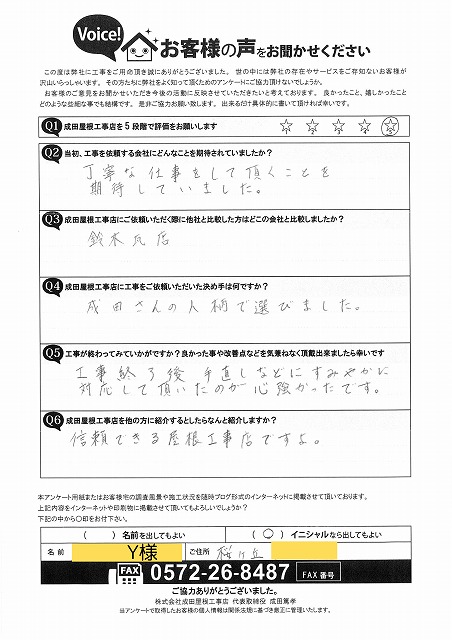 Voice!
お客様の声をお聞かせください
この度は弊社に工事をご用命頂き誠にありがとうございました。 世の中には弊社の存在やサービスをご存知ないお客様が
沢山いらっしゃいます。 その方たちに弊社をよく知って頂くためのアンケートにご協力頂けないでしょうか。
お客様のご意見をお聞かせいただき今後の活動に反映させていきたいと考えております。 良かったこと、嬉しかったこと
どのような些細な事でも結構です。 是非ご協力お願い致します。 出来るだけ具体的に書いて頂ければ幸いです。
Q1 成田屋根工事店を5段階で評価をお願いします
☆1 ☆2 ☆3 ☆4 ☆5
Q2 当初、工事を依頼する会社にどんなことを期待されていましたか?
丁寧な仕事をして頂くことを
期待していました。
Q3 成田屋根工事店にご依頼いただく際に他社と比較した方はどこの会社と比較しましたか?
鈴木瓦店
Q4 成田屋根工事店に工事をご依頼いただいた決め手は何ですか?
成田さんの人柄で選びました。
Q5 工事が終わってみていかがですか?良かった事や改善点などを気兼ねなく頂戴出来ましたら幸いです
工事終了後 手直しなどにすみやかに
対応して頂いたのが心強かったです。
Q6 成田屋根工事店を他の方に紹介するとしたらなんと紹介しますか?
信頼できる屋根工事店ですよ。
本アンケート用紙またはお客様宅の調査風景や施工状況を随時ブログ形式のインターネットに掲載させて頂いております。
上記内容をインターネットや印刷物に掲載させて頂いてもよろしいでしょうか?
下記の中から〇印をお付下さい。
( ) 名前を出してもよい ( 〇 ) イニシャルなら出してもよい
名前 Y様 ご住所 桜ヶ丘
FAX 0572-26-8487 FAX番号
ご協力ありがとうございました。
株式会社成田屋根工事店 代表取締役 成田篤孝
当アンケートで取得したお客様の個人情報は関係法規に基づき厳正に管理いたします。